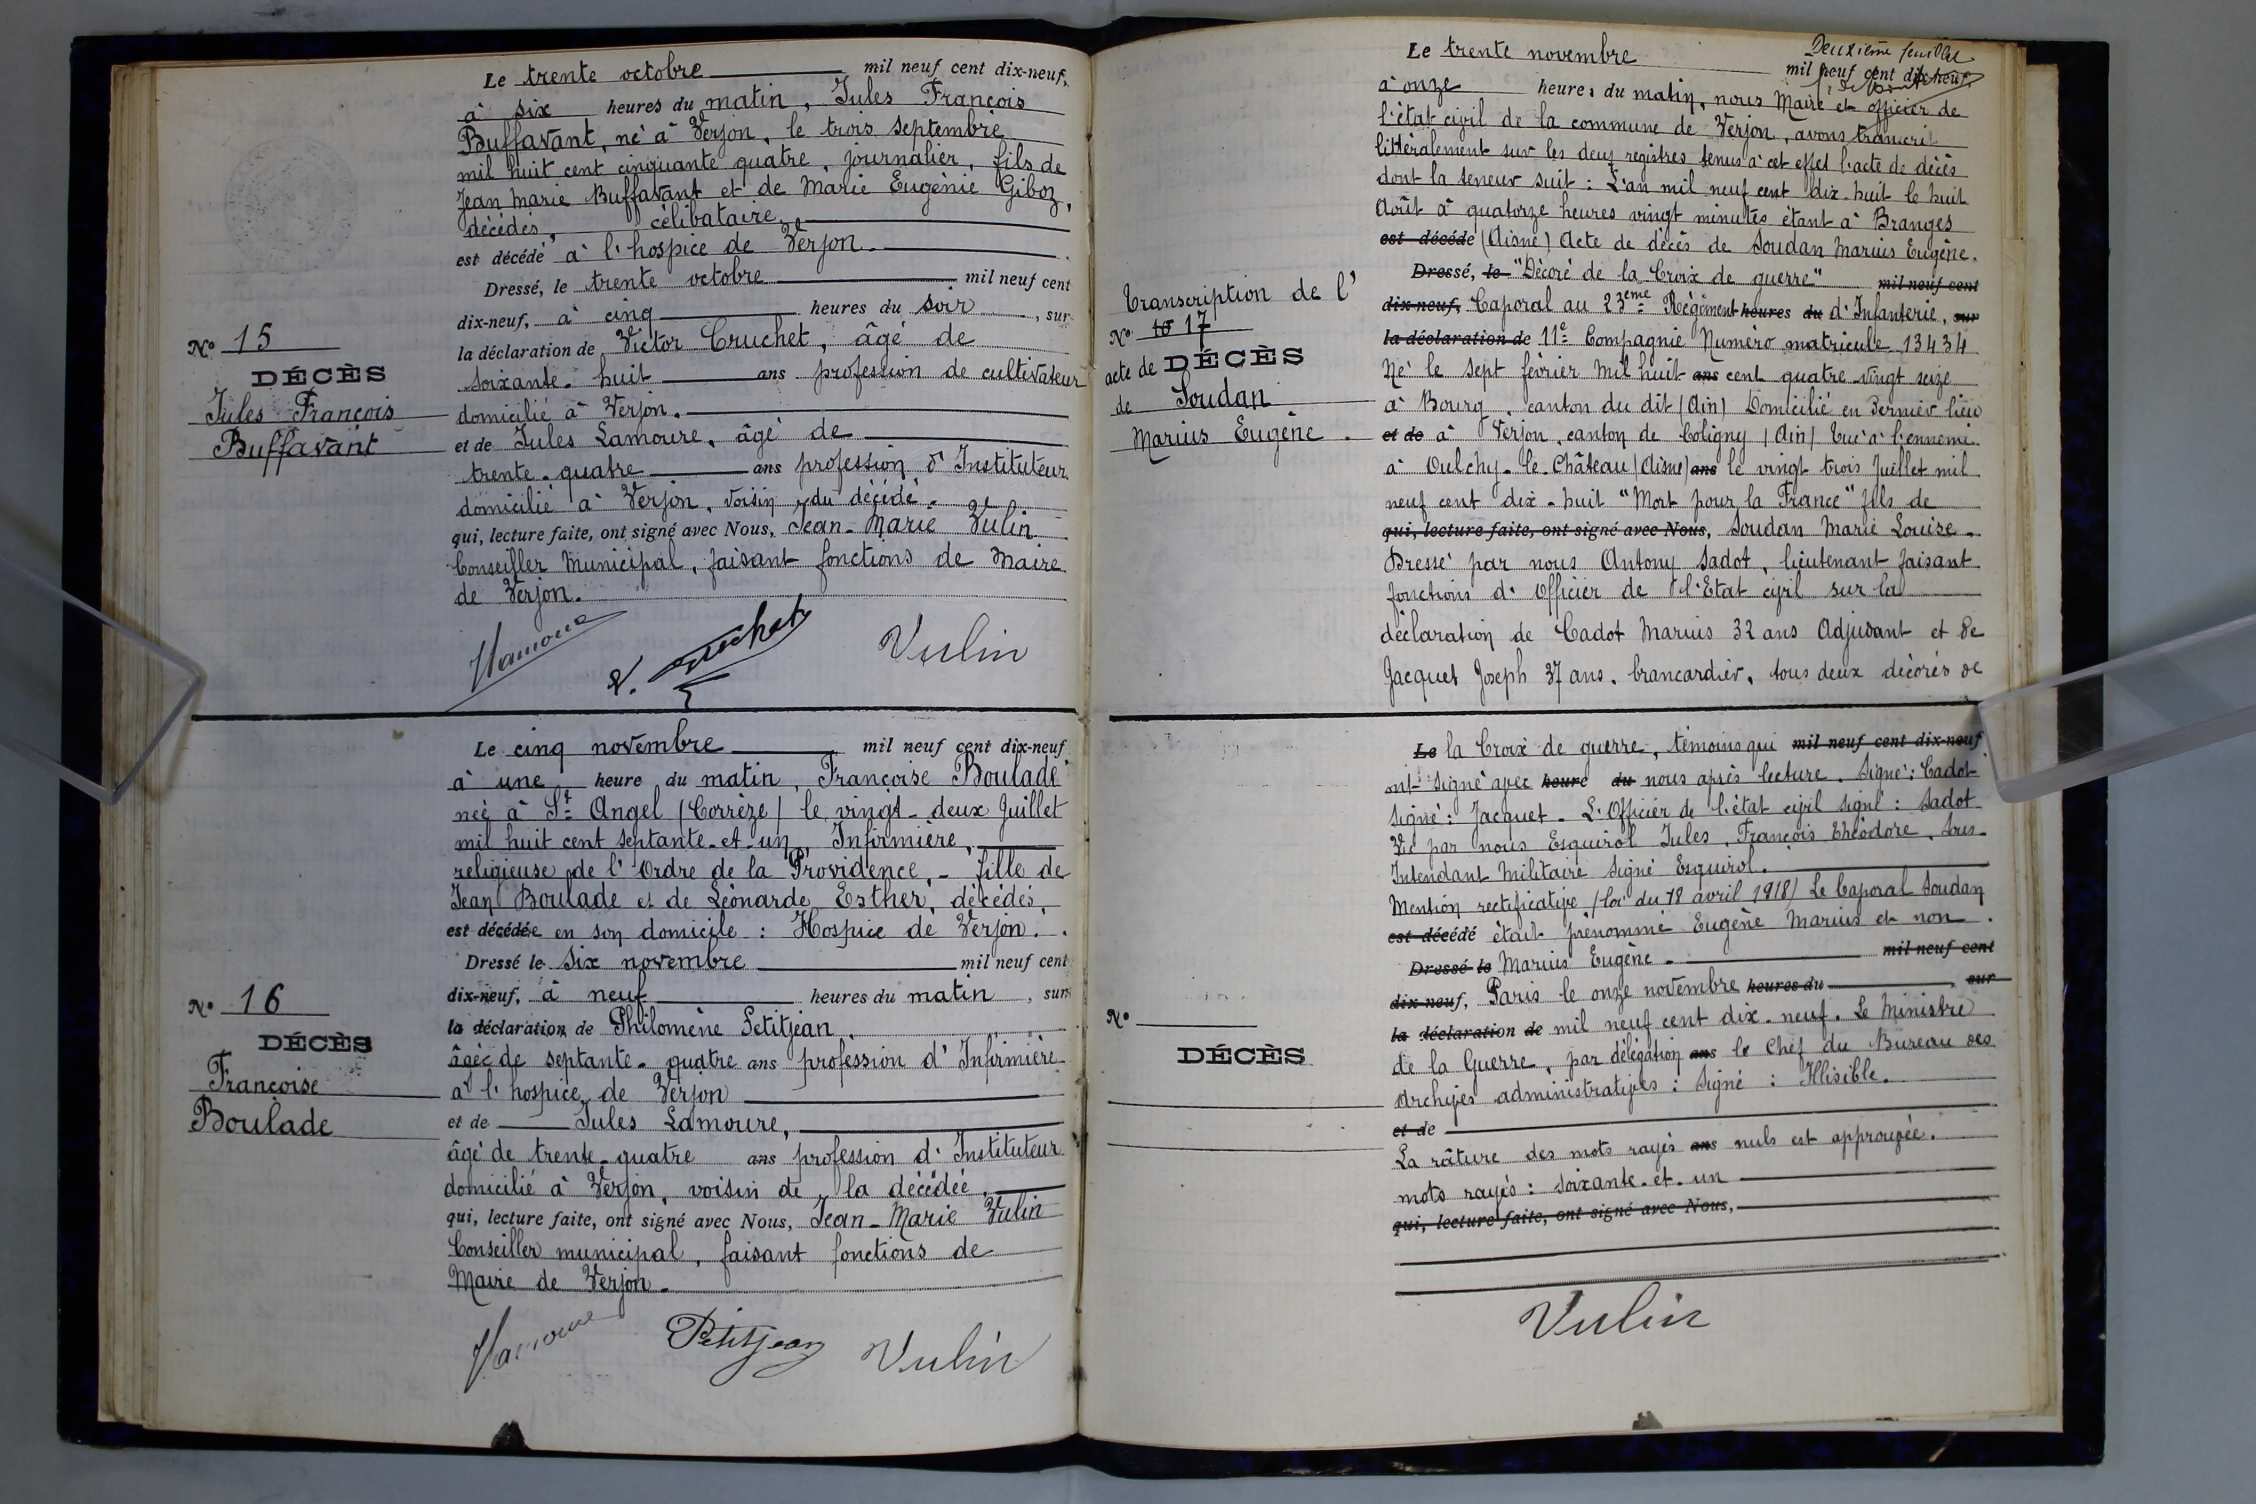 Le trente octobre mil neuf cent dix-neuf,
à six heures du matin, Jules François
Buffavant, né à Verjon, le trois septembre
mil huit cent cinquante quatre, journalier, fils de
Jean Marie Buffavant et de Marie Eugénie Giboz,
décédés, célibataire,
est décédé à l'hospice de Verjon.
Dressé, le trente octobre mil neuf cent
dix-neuf, à cinq heures du soir, sur
la déclaration de Victor Cruchet, âgé de
soixante-huit ans profession de cultivateur
domicilié à Verjon.
et de Jules Lamoure, âgé de
trente-quatre ans profession d'Instituteur
domicilié à Verjon, voisin du décédé.
qui, lecture faite, ont signé avec Nous, Jean-Marie Vulin
Conseiller Municipal, faisant fonctions de Maire
de Verjon.
N° 15
DÉCÈS
Jules François
Buffavant
JLamoure V. Cruchet Vulin
Le cinq novembre mil neuf cent dix-neuf
à une heure du matin, Françoise Boulade
née à St Angel (Corrèze) le vingt-deux Juillet
mil huit cent septante-et-un, Infirmière,
religieuse de l'Ordre de la Providence, - fille de
Jean Boulade et de Léonarde Esther, décédés,
est décédée en son domicile : Hospice de Verjon.
Dressé le six novembre mil neuf cent
dix-neuf, à neuf heures du matin, sur
la déclaration de Philomène Petitjean,
âgée de septante-quatre ans profession d'Infirmière
à l'hospice de Verjon
et de Jules Lamoure,
âgé de trente-quatre ans profession d'Instituteur
domicilié à Verjon, voisin de la décédée,
qui, lecture faite, ont signé avec Nous, Jean-Marie Vulin
Conseiller municipal, faisant fonctions de
Maire de Verjon.
N° 16
DÉCÈS
Françoise
Boulade
JLamoure Petitjean Vulin
Deuxième feuillet
Le trente novembre mil neuf cent dix-neuf,
à onze heures du matin, nous Maire et officier de
l'état civil de la commune de Verjon, avons transcrit
littéralement sur les deux registres tenus à cet effet l'acte de décès
dont la teneur suit : L'an mil neuf cent dix-huit le huit
Août à quatorze heures vingt minutes étant à Branges
est décédé (Aisne) Acte de décès de Soudan Marius Eugène.
Dressé, le "Décoré de la Croix de guerre" mil neuf cent
dix-neuf, Caporal au 23eme Régiment heures du d'Infanterie, sur
la déclaration de 11e Compagnie Numéro matricule 13434
Né le sept février mil huit ans cent quatre vingt seize
à Bourg, canton du dit (Ain) Domicilié en dernier lieu
et de à Verjon, canton de Coligny (Ain) Tué à l'ennemi
à Oulchy-le-Château (Aisne) ans le vingt trois Juillet mil
neuf cent dix-huit "Mort pour la France" fils de
qui, lecture faite, ont signé avec Nous, Soudan Marie Louise.
Dressé par nous Antony Sadot, lieutenant faisant
fonctions d'Officier de l'Etat civil sur la
déclaration de Cadot Marius 32 ans Adjudant et de
Jacquet Joseph 37 ans, brancardier, tous deux décorés de
Transcription de l'
N° 16 17
acte de DÉCÈS
de Soudan
Marius Eugène.
Le la Croix de guerre, témoins qui mil neuf cent dix-neuf,
ont signé avec heure du nous après lecture. Signé : Cadot
signé : Jacquet - L'Officier de l'état civil signé : Sadot
Vu par nous Esquirol Jules, François Théodore, Sous-
Intendant Militaire signé Esquirol.
Mention rectificative (loi du 18 avril 1918) Le Caporal Soudan
est décédé était prénommé Eugène Marius et non
Dressé le Marius Eugène mil neuf cent
dix-neuf, Paris le onze novembre heures du sur
la déclaration de mil neuf cent dix-neuf. Le Ministre
de la Guerre, par délégation ans le Chef du Bureau des
Archives administratives : signé : Illisible.
et de
La râture des mots rayés ans nuls est approuvée.
mots rayés : soixante-et-un
qui, lecture faite, ont signé avec Nous,
N°
DÉCÈS
Vulin